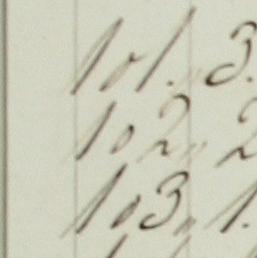 101. 3.
102 „ 2
103 „ 1.